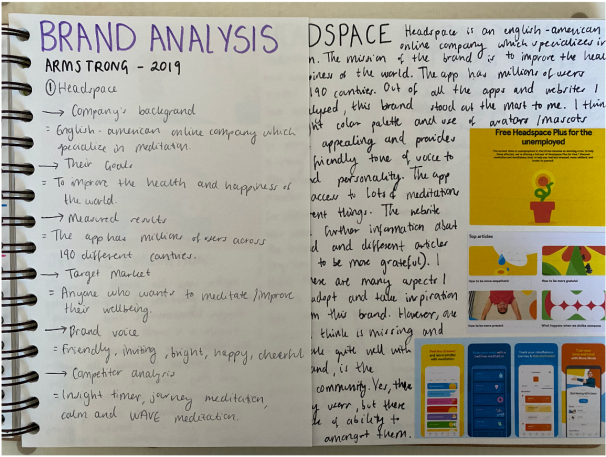 BRAND ANALYSIS
ARMSTRONG - 2019
① Headspace
→ Company's background
= English-american online company which
specialize in meditation.
→ Their Goals
= To improve the health and happiness of
the world.
→ Measured results
= The app has millions of users across
190 different countries.
→ Target Market
= Anyone who wants to meditate/improve
their wellbeing.
→ Brand voice
= Friendly, inviting, bright, happy, cheerful
→ Competitor analysis
= Insight timer, journey meditation,
calm and WAVE meditation.
DSPACE Headspace is an english-american
online company which specializes in
n. The mission of the brand is to improve the heal
piness of the world. The app has millions of users
190 countries. Out of all the apps and websites I
lysed, this brand stood out the most to me. I think
ht color palette and use of avatars/mascots
appealing and provides
friendly tone of voice to
d personality. The app
access to lots of meditations
ent things. The website
further information about
d and different articles
to be more grateful). I
ere are many aspects I
adopt and take inspiration
m this brand. However, one
think is missing and
quite well with
and, is the
community. Yes, there
y users, but there
e of ability to
amongst them.
Free Headspace Plus for the
unemployed
Top articles
How to be more impatient
How to be more grateful
How to be more present
What happens when we dislike someone